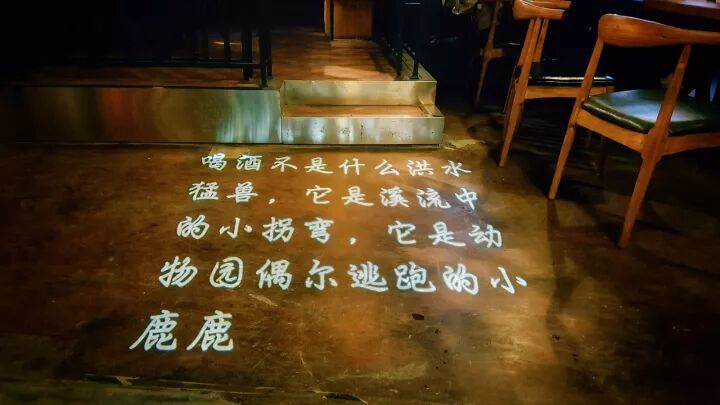 喝酒不是什么洪水
猛兽，它是溪流中
的小拐弯，它是动
物园偶尔逃跑的小
鹿鹿